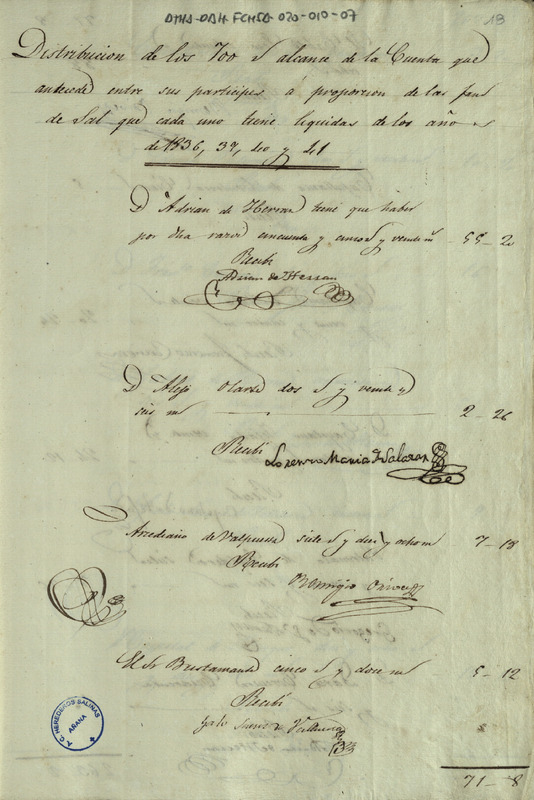 ATHA-DAH-FCHSA-020-010-07
13
Distribucion de los 700 s alcance de la Cuenta que
antecede entre sus participes á proporcion de las fans
de Sal que cada uno tiene liquidas de los años
de 1836, 37, 40 y 41
D Adrian de Herran tiene que haber
por dha razon cincuenta y cinco s y veinte ms 55-20
Recibi
Adrian de Herran
D Alejo Olarte dos s y veinte y
seis ms 2-26
Recibi
Lorenzo Maria de Salazar
Arcediano de Valpuesta siete s y diez y ocho ms 7-18
Recibi
Remigio
El Sr Bustamante cinco s y doce ms 5-12
Recibi
71-8
A.C. HEREDEROS SALINAS
ARANA